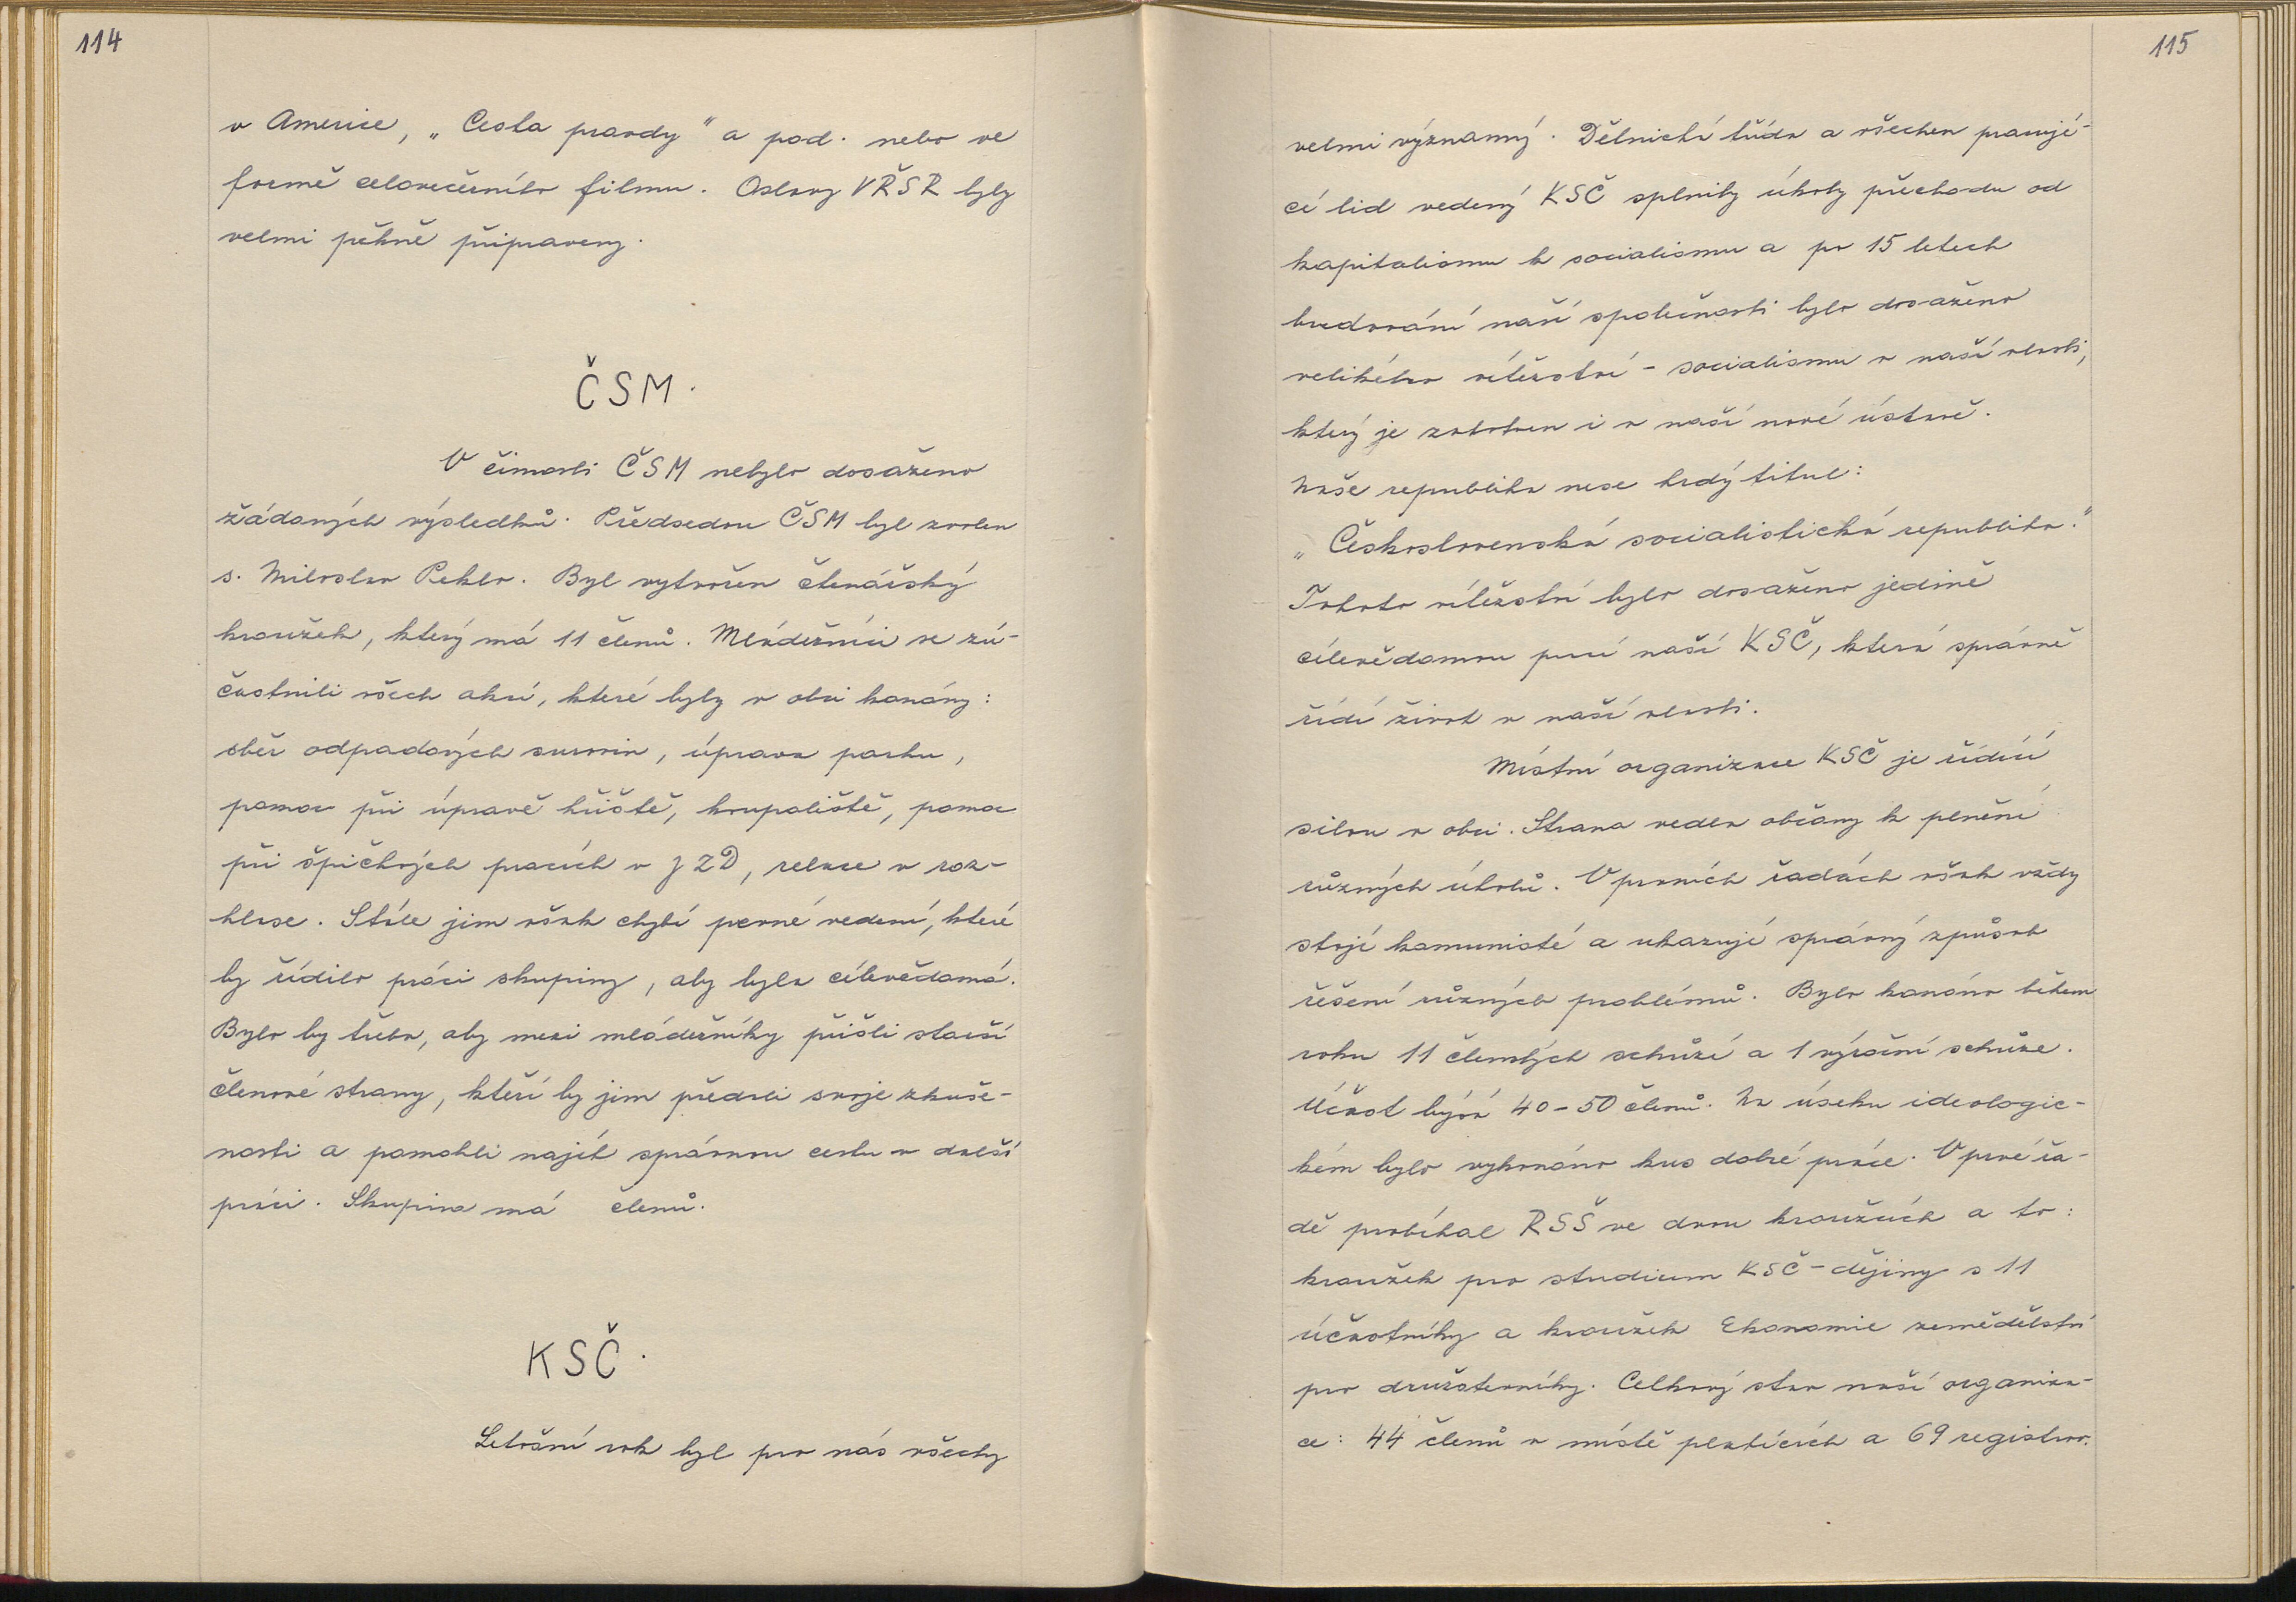 114
v Americe, „Cesta pravdy" a pod. nebo ve
formě celovečerního filmu. Oslavy VŘSR byly
velmi pěkně připraveny.
ČSM.
V činnosti ČSM nebylo dosaženo
žádaných výsledků. Předsedou ČSM byl zvolen
s. Miloslav Peklo. Byl vytvořen čtenářský
kroužek, který má 11 členů. Mládežníci se zú-
častnili všech akcí, které byly v obci konány:
sběr odpadových surovin, úprava parku,
pomoc při úpravě hřiště, koupaliště, pomoc
při špičkových pracích v JZD, relace v roz-
hlase. Stále jim však chybí pevné vedení, které
by řídilo práci skupiny, aby byla cílevědomá.
Bylo by třeba, aby mezi mládežníky přišli starší
členové strany, kteří by jim předali svoje zkuše-
nosti a pomohli najít správnou cestu v další
práci. Skupina má členů.
KSČ.
Letošní rok byl pro nás všechy
115
velmi významný. Dělnická třída a všechen pracují-
cí lid vedený KSČ splnily úkoly přechodu od
kapitalismu k socialismu a po 15 letech
budování naší společnosti bylo dosaženo
velikého vítězství - socialismu v naší vlasti,
který je zakotven i v naší nové ústavě.
Naše republika nese hrdý titul:
„Československá socialistická republika."
Tohoto vítězství bylo dosaženo jedině
cílevědomou prací naší KSČ, která správně
řídí život v naší vlasti.
Místní organizace KSČ je řídící
silou v obci. Strana vedla občany k plnění
různých úkolů. V prvních řadách však vždy
stojí komunisté a ukazují správný způsob
řešení různých problémů. Bylo konáno během
roku 11 členských schůzí a 1 výroční schůze.
Účast bývá 40-50 členů. Na úseku ideologic-
kém bylo vykonáno kus dobré práce. V prvé řa-
dě probíhal RSŠ ve dvou kroužcích a to:
kroužek pro studium KSČ - dějiny s 11
účastníky a kroužek Ekonomie zemědělství
pro družstevníky. Celkový stav naší organiza-
ce: 44 členů v místě platících a 69 registrov.